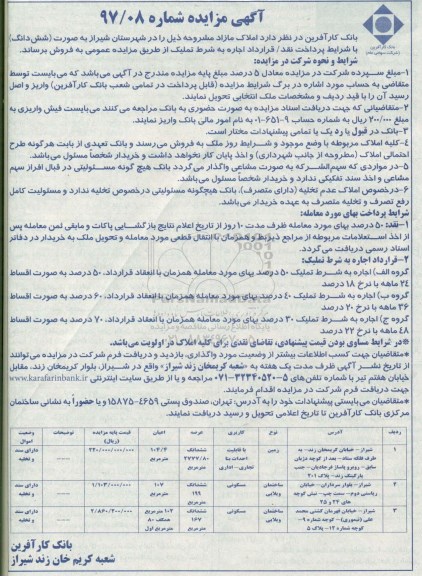 آگهی مزایده شماره ۹۷/۰۸
بانک کارآفرین در نظر دارد املاک مازاد مشروحه ذیل را در شهرستان شیراز به صورت (شش‌دانگ)
با شرایط پرداخت نقد / قرارداد اجاره به شرط تملیک از طریق مزایده عمومی به فروش برساند.
شرایط و نحوه شرکت در مزایده:
۱-مبلغ سپرده شرکت در مزایده معادل ۵ درصد مبلغ پایه مزایده مندرج در آگهی می‌باشد که می‌بایست توسط
متقاضی به حساب مورد اشاره در برگ شرایط مزایده (قابل پرداخت در تمامی شعب بانک کارآفرین) واریز و اصل
رسید آن را با قید ردیف و مشخصات ملک انتخابی تحویل نمایند.
۲-متقاضیانی که جهت دریافت اسناد مزایده به صورت حضوری به بانک مراجعه می کنند می‌بایست فیش واریزی به
مبلغ ۲۰۰/۰۰۰ ریال به شماره حساب ۹-۶۵۱-۰۱ به نام امور مالی بانک واریز نمایند.
۳-بانک در قبول یا رد یک یا تمامی پیشنهادات مختار است.
۴-کلیه املاک مربوطه با وضع موجود و شرایط روز ملک به فروش می‌رسند و بانک تعهدی از بابت هرگونه طرح
احتمالی املاک (مطروحه از جانب شهرداری) و اخذ پایان کار نخواهد داشت و خریدار شخصاً مسئول می‌باشد.
۵-در مواردی که سهم‌الشرکه به صورت مشاعی واگذار می‌گردد بانک هیچ گونه مسئولیتی در قبال افراز سهم
مشاعی و اخذ سند تفکیکی ندارد و خریدار شخصاً مسئول می‌باشد.
۶-درخصوص املاک عدم تخلیه (دارای متصرف)، بانک هیچگونه مسئولیتی درخصوص تخلیه ندارد و مسئولیت کامل
رفع تصرف و تخلیه متصرف به عهده خریدار می‌باشد.
شرایط پرداخت بهای مورد معامله:
۱-نقد: ۵۰ درصد بهای مورد معامله ظرف مدت ۱۰ روز از تاریخ اعلام نتایج بازگشایی پاکات و مابقی ثمن معامله پس
از اخذ استعلامات مربوطه از مراجع ذیربط و همزمان با انتقال قطعی مورد معامله و تحویل ملک به خریدار در دفاتر
اسناد رسمی دریافت می‌گردد.
۲-قرارداد اجاره به شرط تملیک:
گروه الف) اجاره به شرط تملیک ۵۰ درصد بهای مورد معامله همزمان با انعقاد قرارداد، ۵۰ درصد به صورت اقساط
۲۴ ماهه با نرخ ۱۸ درصد
گروه ب) اجاره به شرط تملیک ۴۰ درصد بهای مورد معامله همزمان با انعقاد قرارداد، ۶۰ درصد به صورت اقساط
۳۶ ماهه با نرخ ۲۰ درصد
گروه ج) اجاره به شرط تملیک ۳۰ درصد بهای مورد معامله همزمان با انعقاد قرارداد، ۷۰ درصد به صورت اقساط
۴۸ ماهه با نرخ ۲۲ درصد
*در شرایط مساوی بودن قیمت پیشنهادی، تقاضای نقدی برای کلیه املاک در اولویت می‌باشد.
*متقاضیان جهت کسب اطلاعات بیشتر از وضعیت مورد واگذاری، بازدید و دریافت فرم شرکت در مزایده می‌توانند
از تاریخ نشر آگهی ظرف مدت یک هفته به «شعبه کریمخان زند شیراز» واقع در شیراز، بلوار کریمخان زند، مقابل
خیابان هفتم تیر با شماره تلفن‌های ۵-۳۲۳۴۰۵۲۰-۰۷۱ مراجعه و یا از طریق سایت اینترنتی www.karafarinbank.ir
جهت دریافت فرم شرکت در مزایده اقدام فرمایند.
*متقاضیان می‌بایستی پیشنهادات خود را به آدرس: تهران، صندوق پستی ۴۶۵۹-۱۵۸۷۵ و یا حضوراً به نشانی ساختمان
مرکزی بانک کارآفرین تا تاریخ اعلامی تحویل و رسید دریافت نمایند.
ردیف آدرس نوع کاربری عرصه اعیان قیمت پایه مزایده (ریال) توضیحات وضعیت اموال
۱ شیراز - خیابان کریمخان زند - به طرف فلکه ستاد - بعد از کوچه دژبان سابق - روبرو پاساژ فرجادیان - جنب پارکینگ زند - پلاک ۲۰۱ زمین با قابلیت احداث بنا تجاری - اداری ششدانگ ۲۷۷۷/۸۰ مترمربع ۱۰۴/۴ مترمربع ۲۳۰/۰۰۰/۰۰۰/۰۰۰ دارای سند و تخلیه
۲ شیراز - بلوار سرداران - خیابان ریاستی دوم - سمت چپ - نبش کوچه های ۲۳ و ۲۵ ساختمان ویلایی مسکونی ششدانگ ۱۹۹ مترمربع ۱۰۷ مترمربع ۱/۱۰۳/۰۰۰/۰۰۰ دارای سند و تخلیه
۳ شیراز - خیابان قهرمان کشتی محمد علی (تیموری) - کوچه شماره ۹ - کوچه شماره ۱۲ - پلاک ۵ ساختمان ویلایی مسکونی ششدانگ ۱۶۷ مترمربع ۱۰۲ مترمربع همکف ۸۰ مترمربع اول ۲/۸۶۰/۲۰۰/۰۰۰ دارای سند و تخلیه
بانک کارآفرین
شعبه کریم خان زند شیراز